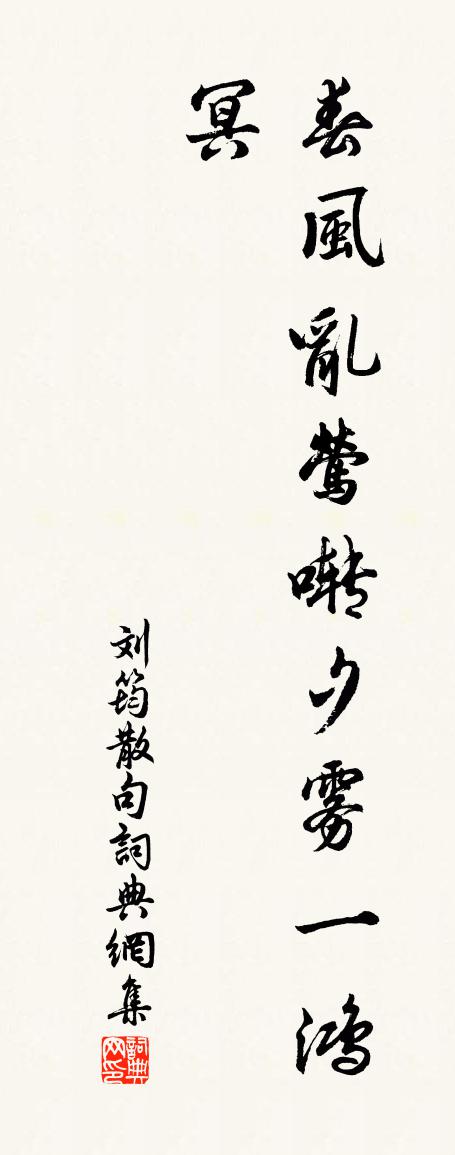 春風亂鶯啭夕雾一鴻
冥
刘筠散句詞典網集
詞典
网印